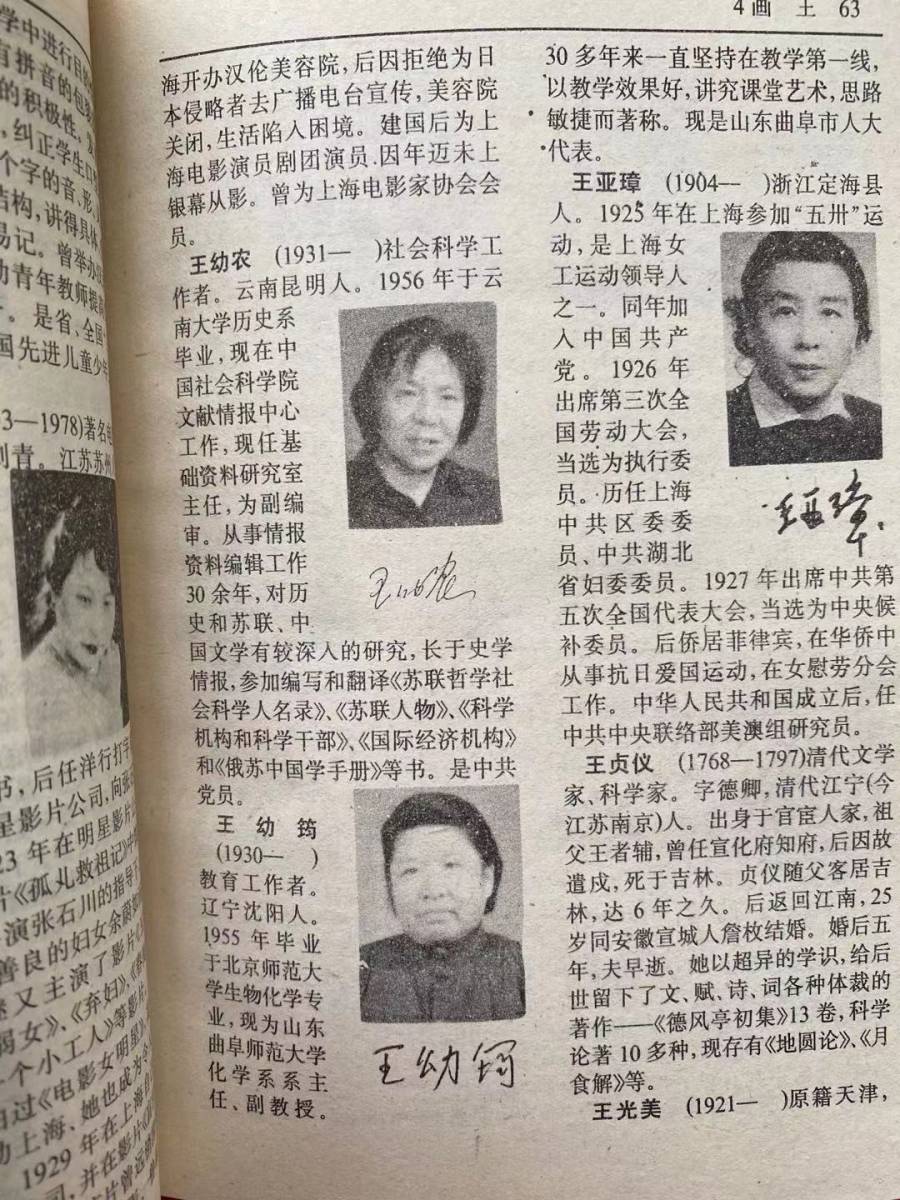 4画 王 63
学中进行目的
有拼音的包
的积极性。及
，纠正学生口
个字的音、形、
结构，讲得具体
易记。曾举办
动青年教师提高
。是省、全国
国先进儿童少年
3—1978)著名电
刘青。江苏苏州
书，后任洋行打字
星影片公司，向张
23 年在明星影片
片《孤儿救祖记》中
演张石川的指导
善良的妇女余蔚如
继又主演了影片
弱女》、《弃妇》、
一个小工人》等影片
自过《电影女明星》
动上海、她也成为
1929 年在上海自
司，并在影片《
片曾远销
海开办汉伦美容院，后因拒绝为日
本侵略者去广播电台宣传，美容院
关闭，生活陷入困境。建国后为上
海电影演员剧团演员.因年迈未上
银幕从影。曾为上海电影家协会会
员。
王幼农 (1931— )社会科学工
作者。云南昆明人。1956 年于云
南大学历史系
毕业，现在中
国社会科学院
文献情报中心
工作，现任基
础资料研究室
主任，为副编
审。从事情报
资料编辑工作
30 余年，对历
史和苏联、中
国文学有较深入的研究，长于史学
情报，参加编写和翻译《苏联哲学社
会科学人名录》、《苏联人物》、《科学
机构和科学干部》、《国际经济机构》
和《俄苏中国学手册》等书。是中共
党员。
王幼农
王 幼 筠
(1930— )
教育工作者。
辽宁沈阳人。
1955 年毕业
于北京师范大
学生物化学专
业，现为山东
曲阜师范大学
化学系系主
任、副教授。
王幼筠
30 多年来一直坚持在教学第一线，
以教学效果好，讲究课堂艺术，思路
敏捷而著称。现是山东曲阜市人大
代表。
王亚璋 (1904— )浙江定海县
人。1925 年在上海参加“五卅”运
动，是上海女
工运动领导人
之一。同年加
入中国共产
党。1926 年
出席第三次全
国劳动大会，
当选为执行委
员。历任上海
中共区委委
员、中共湖北
省妇委委员。1927 年出席中共第
五次全国代表大会，当选为中央候
补委员。后侨居菲律宾，在华侨中
从事抗日爱国运动，在女慰劳分会
工作。中华人民共和国成立后，任
中共中央联络部美澳组研究员。
王亚璋
王贞仪 (1768—1797)清代文学
家、科学家。字德卿，清代江宁(今
江苏南京)人。出身于官宦人家，祖
父王者辅，曾任宣化府知府，后因故
遣戍，死于吉林。贞仪随父客居吉
林，达 6 年之久。后返回江南，25
岁同安徽宣城人詹枚结婚。婚后五
年，夫早逝。她以超异的学识，给后
世留下了文、赋、诗、词各种体裁的
著作——《德风亭初集》13 卷，科学
论著 10 多种，现存有《地圆论》、《月
食解》等。
王光美 (1921— )原籍天津，